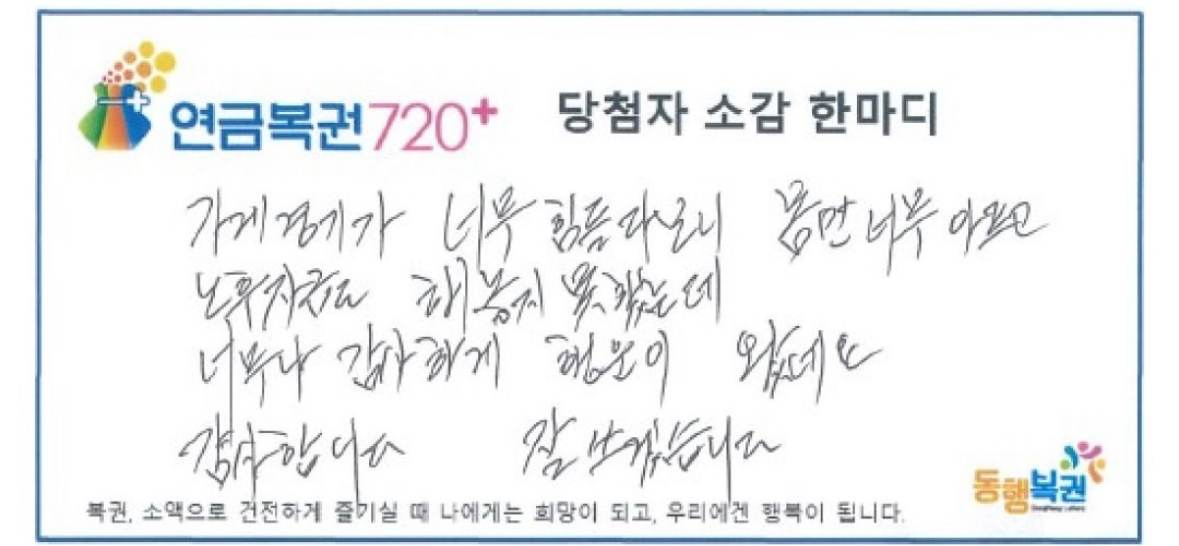 연금복권720+ 당첨자 소감 한마디
가게 경기가 너무 힘들다보니 몸만 너무 아프고
노후자금도 해놓지 못했는데
너무나 감사하게 행운이 왔네요
감사합니다 잘 쓰겠습니다
복권, 소액으로 건전하게 즐기실 때 나에게는 희망이 되고, 우리에겐 행복이 됩니다.
동행복권